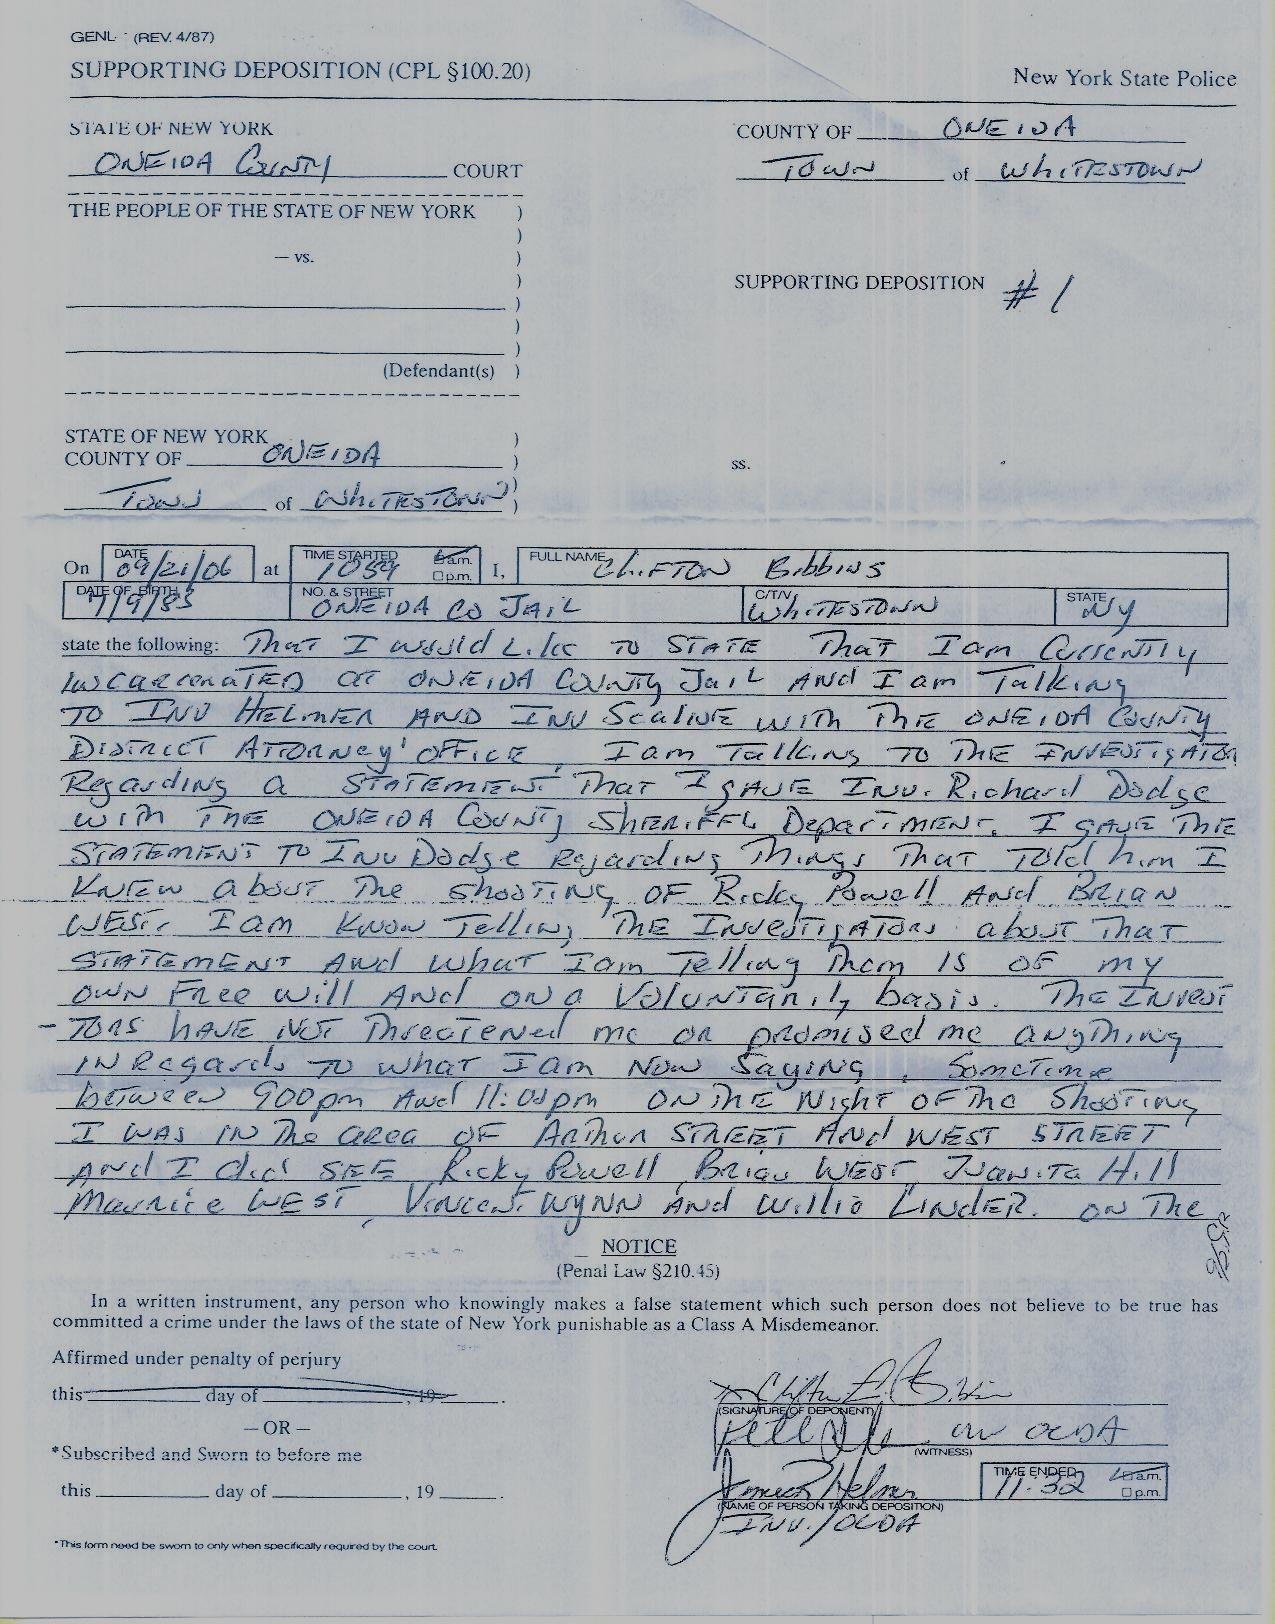 GENL- (REV. 4/87)
SUPPORTING DEPOSITION (CPL §100.20)
New York State Police
STATE OF NEW YORK
ONEIDA County COURT
THE PEOPLE OF THE STATE OF NEW YORK )
)
— vs. )
)
)
)
)
(Defendant(s) )
COUNTY OF ONEIDA
TOWN of WhiTESTOWN
SUPPORTING DEPOSITION # 1
STATE OF NEW YORK )
COUNTY OF ONEIDA )
Town of WhiTESTOWN )
ss.
On DATE 09/21/06 at TIME STARTED 1059 a.m. p.m. I, FULL NAME CliFTON Bibbins
DATE OF BIRTH 7/9/83 NO. & STREET ONEIDA CO JAIL C/T/V WhiTESTOWN STATE NY
state the following: That I would Like TO STATE That I am Currently
Incarcerated at ONEIDA County Jail AND I am Talking
TO INV HELMER AND INV Scalise with The ONEIDA County
District Attorney' OFFICE, I am Talking TO The INVESTIGATOR
Regarding a STATEMENT That I gave Inv. Richard Dodge
with THE ONEIDA County SHERIFFs DeparTMENT. I gave THE
STATEMENT TO INV Dodge Regarding Things That Told him I
Knew about The shooting OF Ricky Powell And BRIAN
WEST. I am Know Telling The INVESTIGATORs about That
STATEMENT And what I am Telling Them is OF my
OWN Free will And on a Voluntarily basis. The INVEST
- TORS HAVE NOT Threatened me or promised me anything
IN Regards TO what I am Now Saying, Sometime
between 900pm And 11:00pm ON The Night OF The Shooting
I was IN The area OF Arthur STREET And WEST STREET
And I did SEE Ricky Powell, Brian WEST, Juanita Hill
Maurice WEST, Vincent WYNN And Willie LINDER. ON The
NOTICE
(Penal Law §210.45)
In a written instrument, any person who knowingly makes a false statement which such person does not believe to be true has
committed a crime under the laws of the state of New York punishable as a Class A Misdemeanor.
Affirmed under penalty of perjury
this day of , 19 .
— OR —
*Subscribed and Sworn to before me
this day of , 19 .
*This form need be sworn to only when specifically required by the court.
(SIGNATURE OF DEPONENT)
INV OCDA
(WITNESS)
(NAME OF PERSON TAKING DEPOSITION)
INV./OCDA
TIME ENDED 11:32 a.m. p.m.